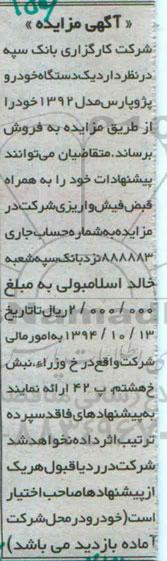 « آگهی مزایده »
شرکت کارگزاری بانک سپه
در نظر دارد یک دستگاه خودرو
پژو پارس مدل ۱۳۹۲ خود را
از طریق مزایده به فروش
برساند. متقاضیان می توانند
پیشنهادات خود را به همراه
قبض فیش واریزی شرکت در
مزایده به شماره حساب جاری
۸۸۸۸۸۳ نزد بانک سپه شعبه
خالد اسلامبولی به مبلغ
۲/۰۰۰/۰۰۰ ریال تا تاریخ
۱۳۹۴/۱۰/۱۳ به امور مالی
شرکت واقع در خ وزراء، نبش
خ هشتم، پ ۴۲ ارائه نمایند
به پیشنهادهای فاقد سپرده
ترتیب اثر داده نخواهد شد
شرکت در رد یا قبول هریک
از پیشنهادها صاحب اختیار
است (خودرو در محل شرکت
آماده بازدید می باشد)